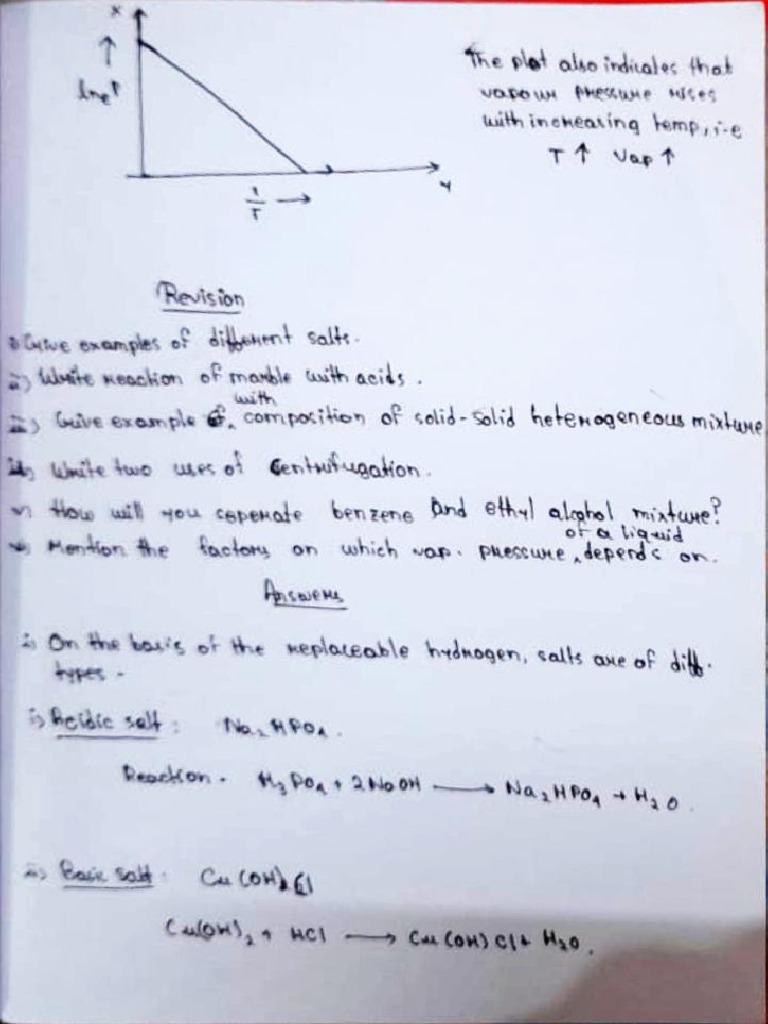 x
The plot also indicates that
vapour pressure rises
with increasing temp, i.e
T ↑ Vap ↑
↑
ln_e P
y
1/T →
Revision
i) Give examples of different salts.
ii) Write reaction of marble with acids.
iii) Give example of with composition of solid-solid heterogeneous mixture
iv) Write two uses of Centrifugation.
v) How will you seperate benzene and ethyl alcohol mixture?
vi) Mention the factors on which vap. pressure of a liquid depends on.
Answers
i) On the basis of the replaceable hydrogen, salts are of diff.
types -
i) Acidic salt : Na₂HPO₄.
Reaction - H₃PO₄ + 2NaOH → Na₂HPO₄ + H₂O.
ii) Basic salt : Cu(OH)Cl
Cu(OH)₂ + HCl → Cu(OH)Cl + H₂O.